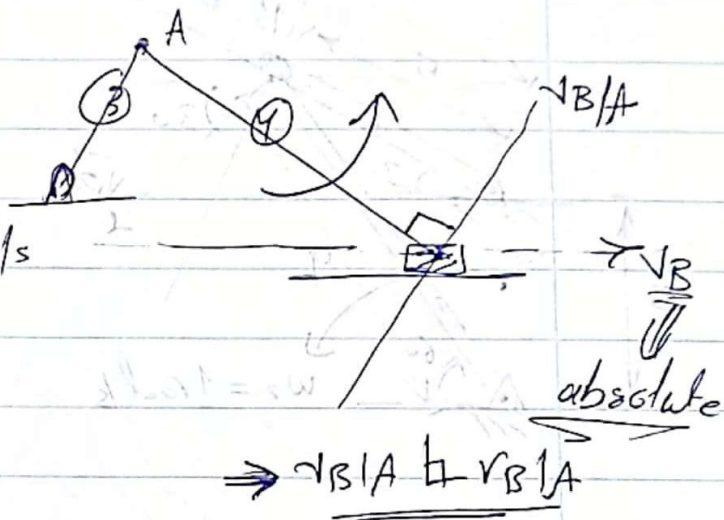 A
3
4
VB/A
/s
VB
absolute
⇒ VB/A ⊥ rB/A